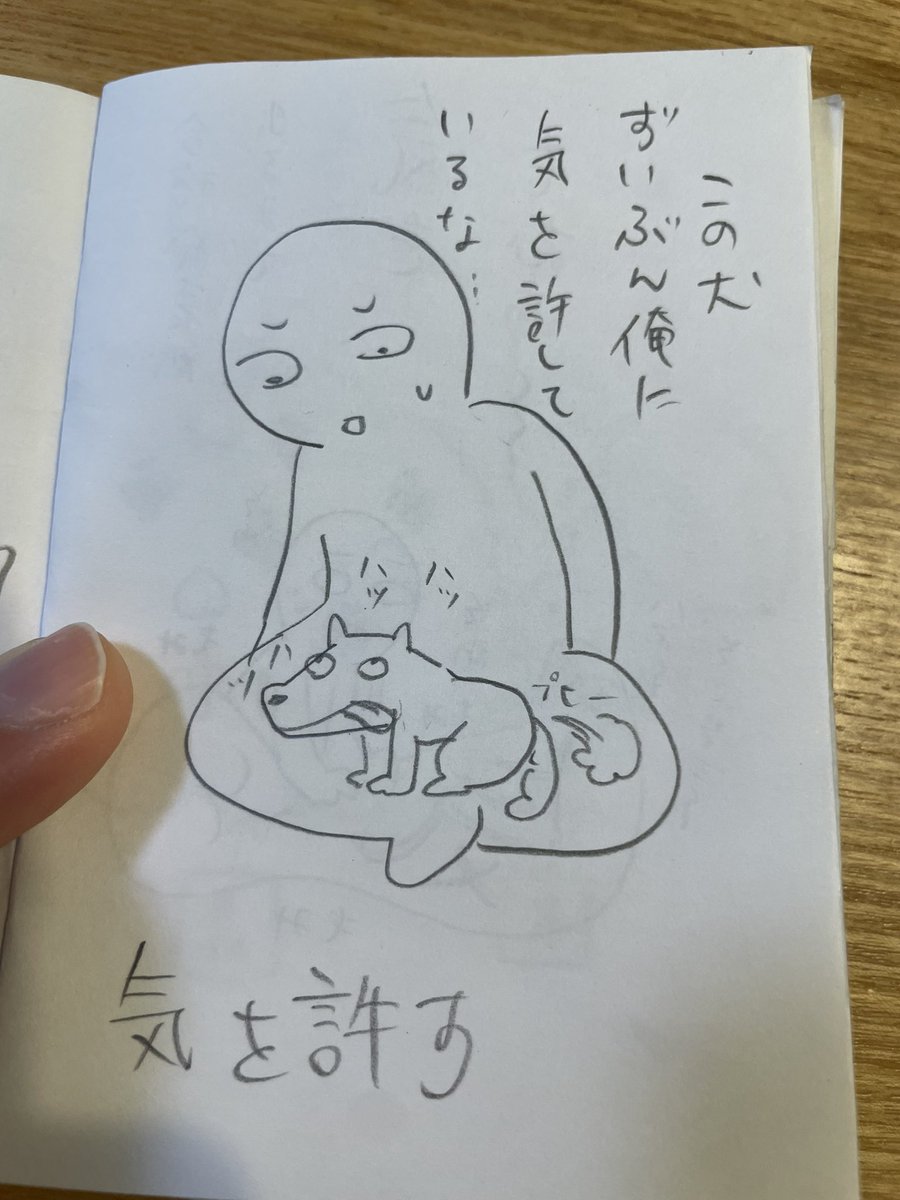 この犬
ずいぶん俺に
気を許して
いるな…
ハッ
ハッ
ハッ
プピー
気を許す